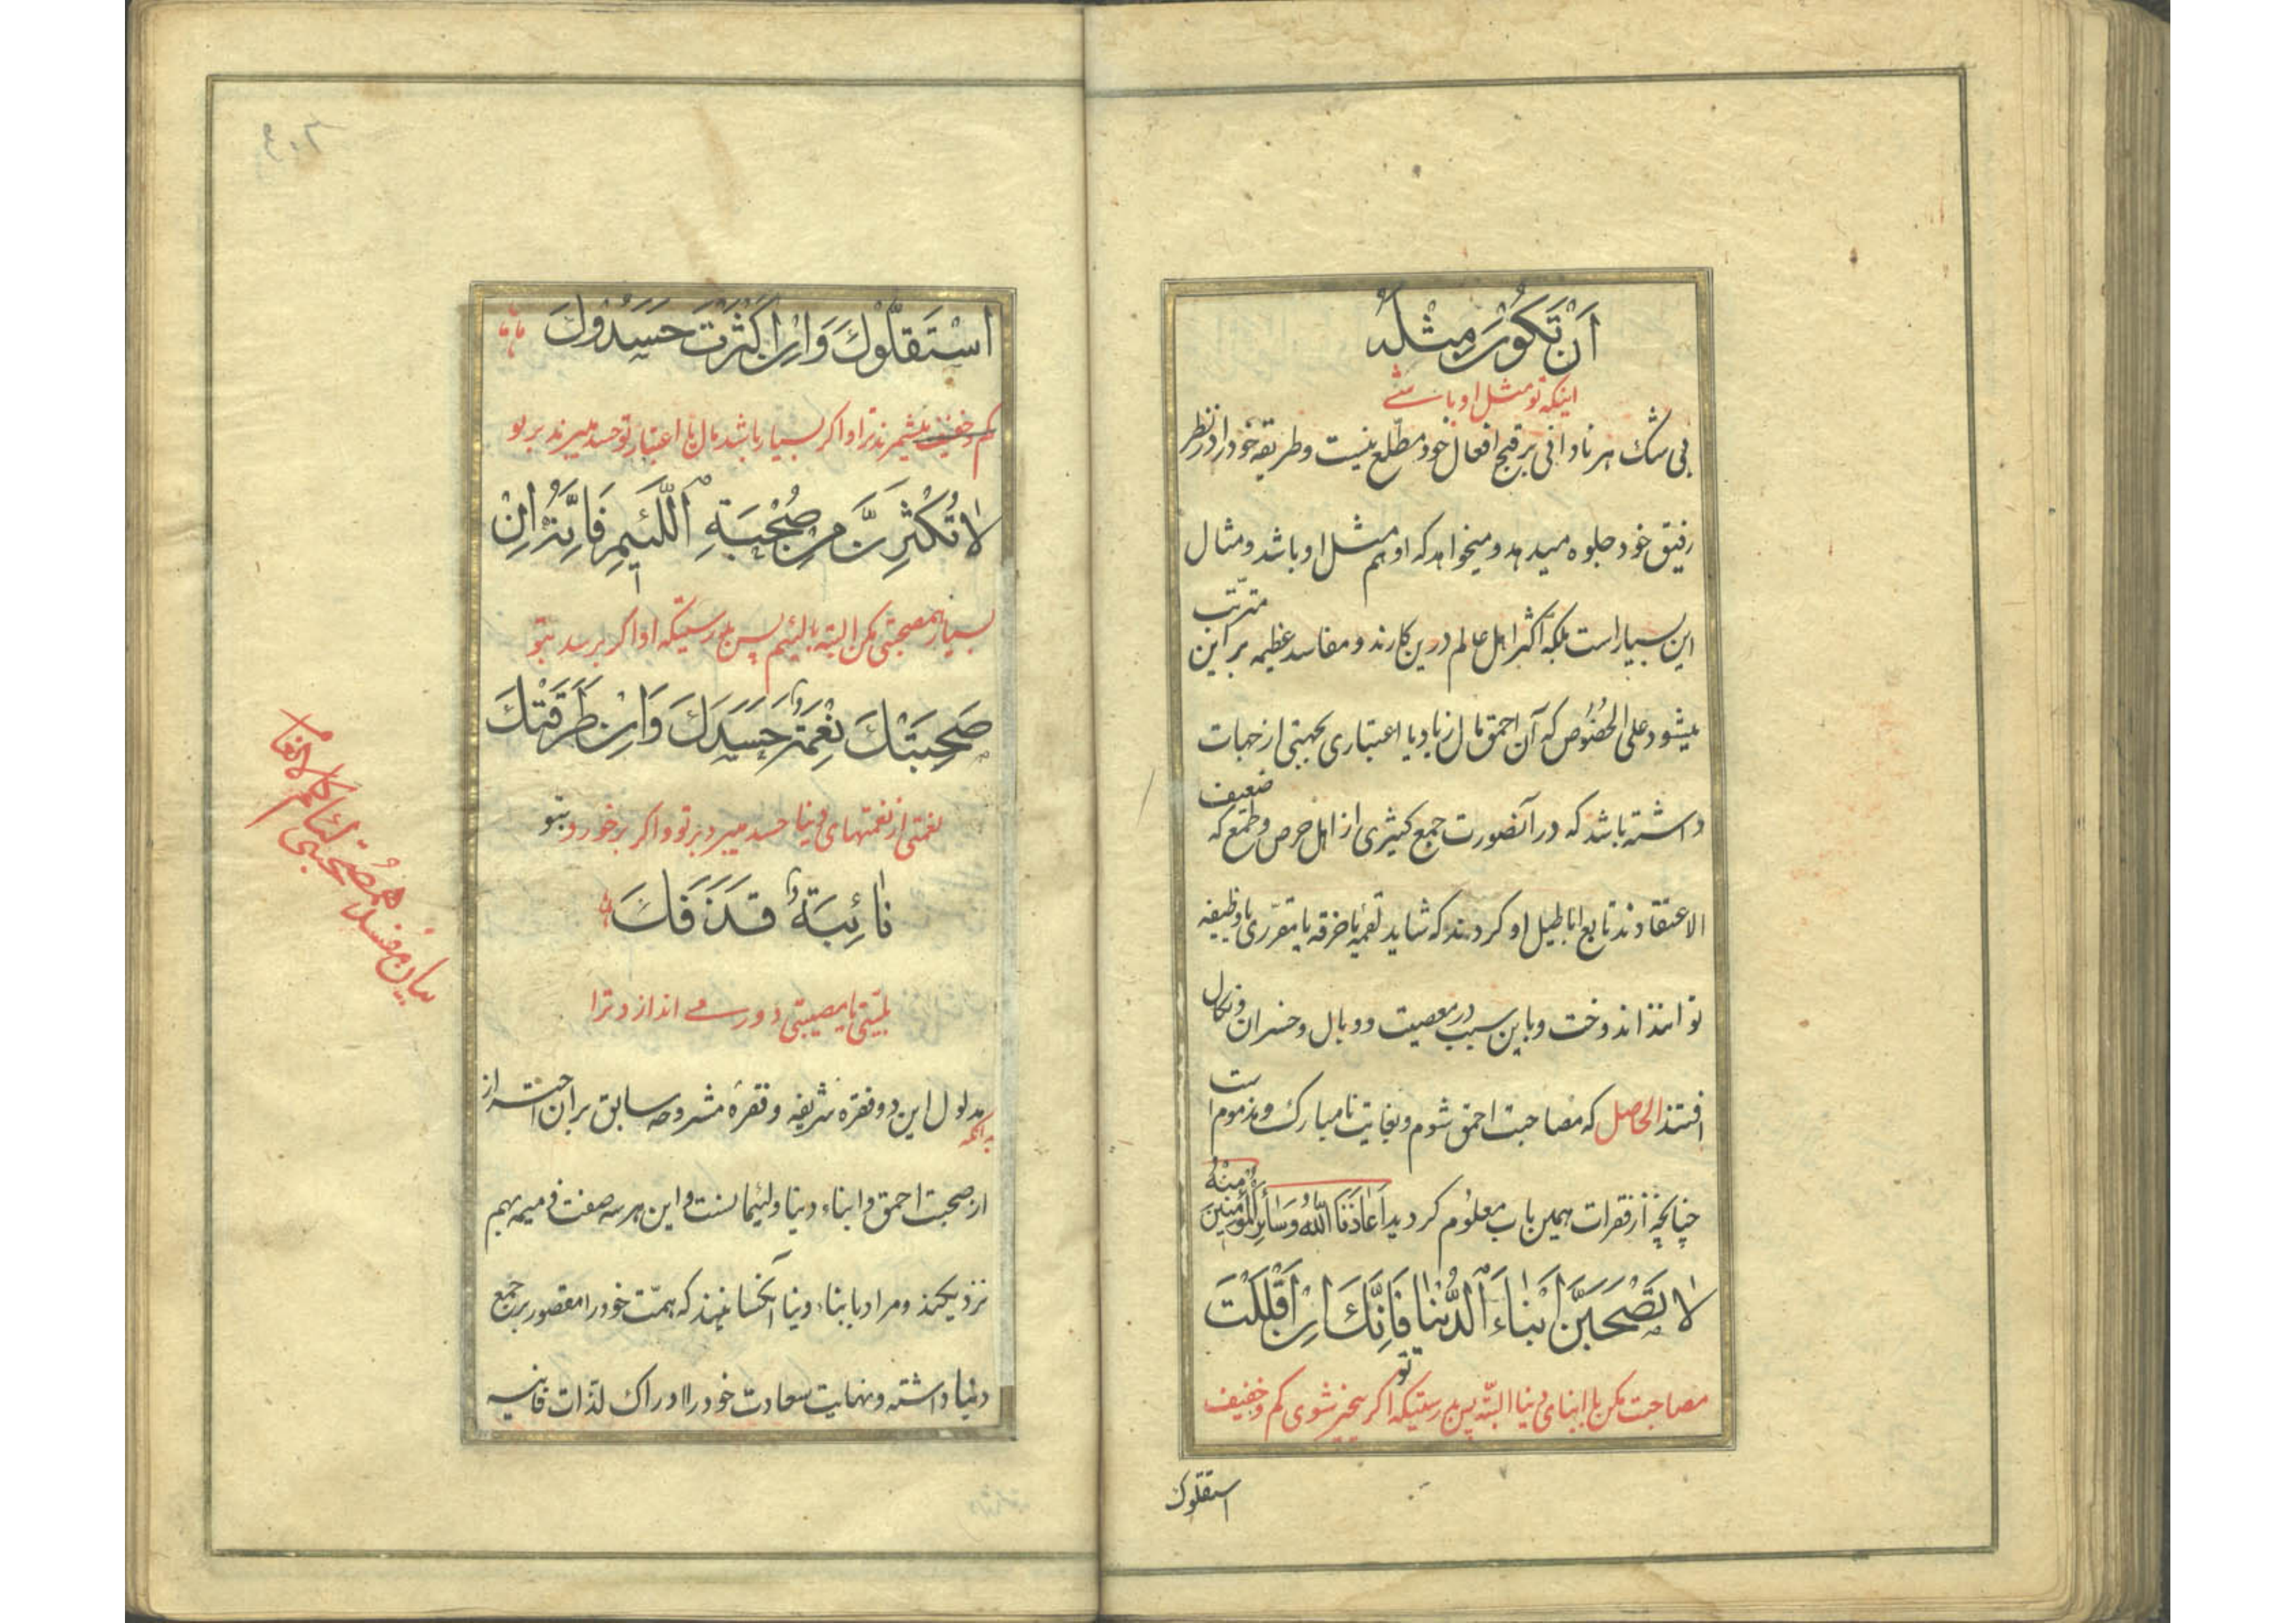 اَنْ تَكُونَ مِثْلَهُ
اینکه تو مثل او باشے
بی شک هر نادانی بر قبح افعال خود مطلع نیست و طریقه خود را در نظر
رفیق خود جلوه میدهد و میخواهد که او هم مثل او باشد و مثال
این بسیار است بلکه اکثر اهل عالم درین کارند و مفاسد عظیمه بر این مترتب
میشود علی الخصوص که آن احمق مال زیاد یا اعتباری بجهتی از جهات
داشته باشد که در آنصورت جمع کثیری از اهل حرص و طمع که ضعیف
الاعتقادند تابع اباطیل او کردند که شاید لقمه یا خرقه یا مقرری یا وظیفه
توانند اندوخت و باین سبب در معصیت و وبال و خسران و نکال
افتند الحاصل که مصاحبت احمق شوم و بغایت نامبارک و مذموم است
چنانچه از فقرات همین باب معلوم کردید اَعَاذَنَا اللهُ وَسَائِرَ الْمُؤْمِنِينَ مِنْهُ
لَا تَصْحَبَنَّ اَبْنَاءَ الدُّنْيَا فَاِنَّكَ اِنْ اَقْلَلْتَ
مصاحبت مکن با ابنای دنیا البته پس بدرستیکه تو اکر بیخیر شوی کم و خفیف
استقلوك
اسْتَقَلُّوْكَ وَاِنْ اَكْثَرْتَ حَسَدُوْكَ
کم و خفیف میشمرند ترا و اکر بسیار باشد مال یا اعتبار تو حسد میبرند بر تو
لَا تُكْثِرَنَّ مِنْ صُحْبَةِ اللَّئِيمِ فَاِنَّهُ اِنْ
بسیار همصحبتی مکن البته با لئیم پس بدرستیکه او اکر برسد بتو
صَحِبَتْكَ نِعْمَةٌ حَسَدَكَ وَاِنْ طَرَقَتْكَ
نعمتی از نعمتهای دنیا حسد میبرد بر تو و اکر برخورد بتو
نَائِبَةٌ قَذَفَكَ
بلیتی یا مصیبتی دور مے اندازد ترا
بدانکه
مدلول این دو فقره شریفه و فقرهٔ مشروحه سابق بر ان احتراز
از صحبت احمق و ابناء دنیا و لئیمانست و این هر سه صفت ذمیمه بهم
نزدیکند و مراد بابناء دنیا آنکسانیند که همت خود را مقصور بر جمع
دنیا داشته و نهایت سعادت خود را ادراک لذات فانیه
بیان مفسدهٔ همصحبتی لئام